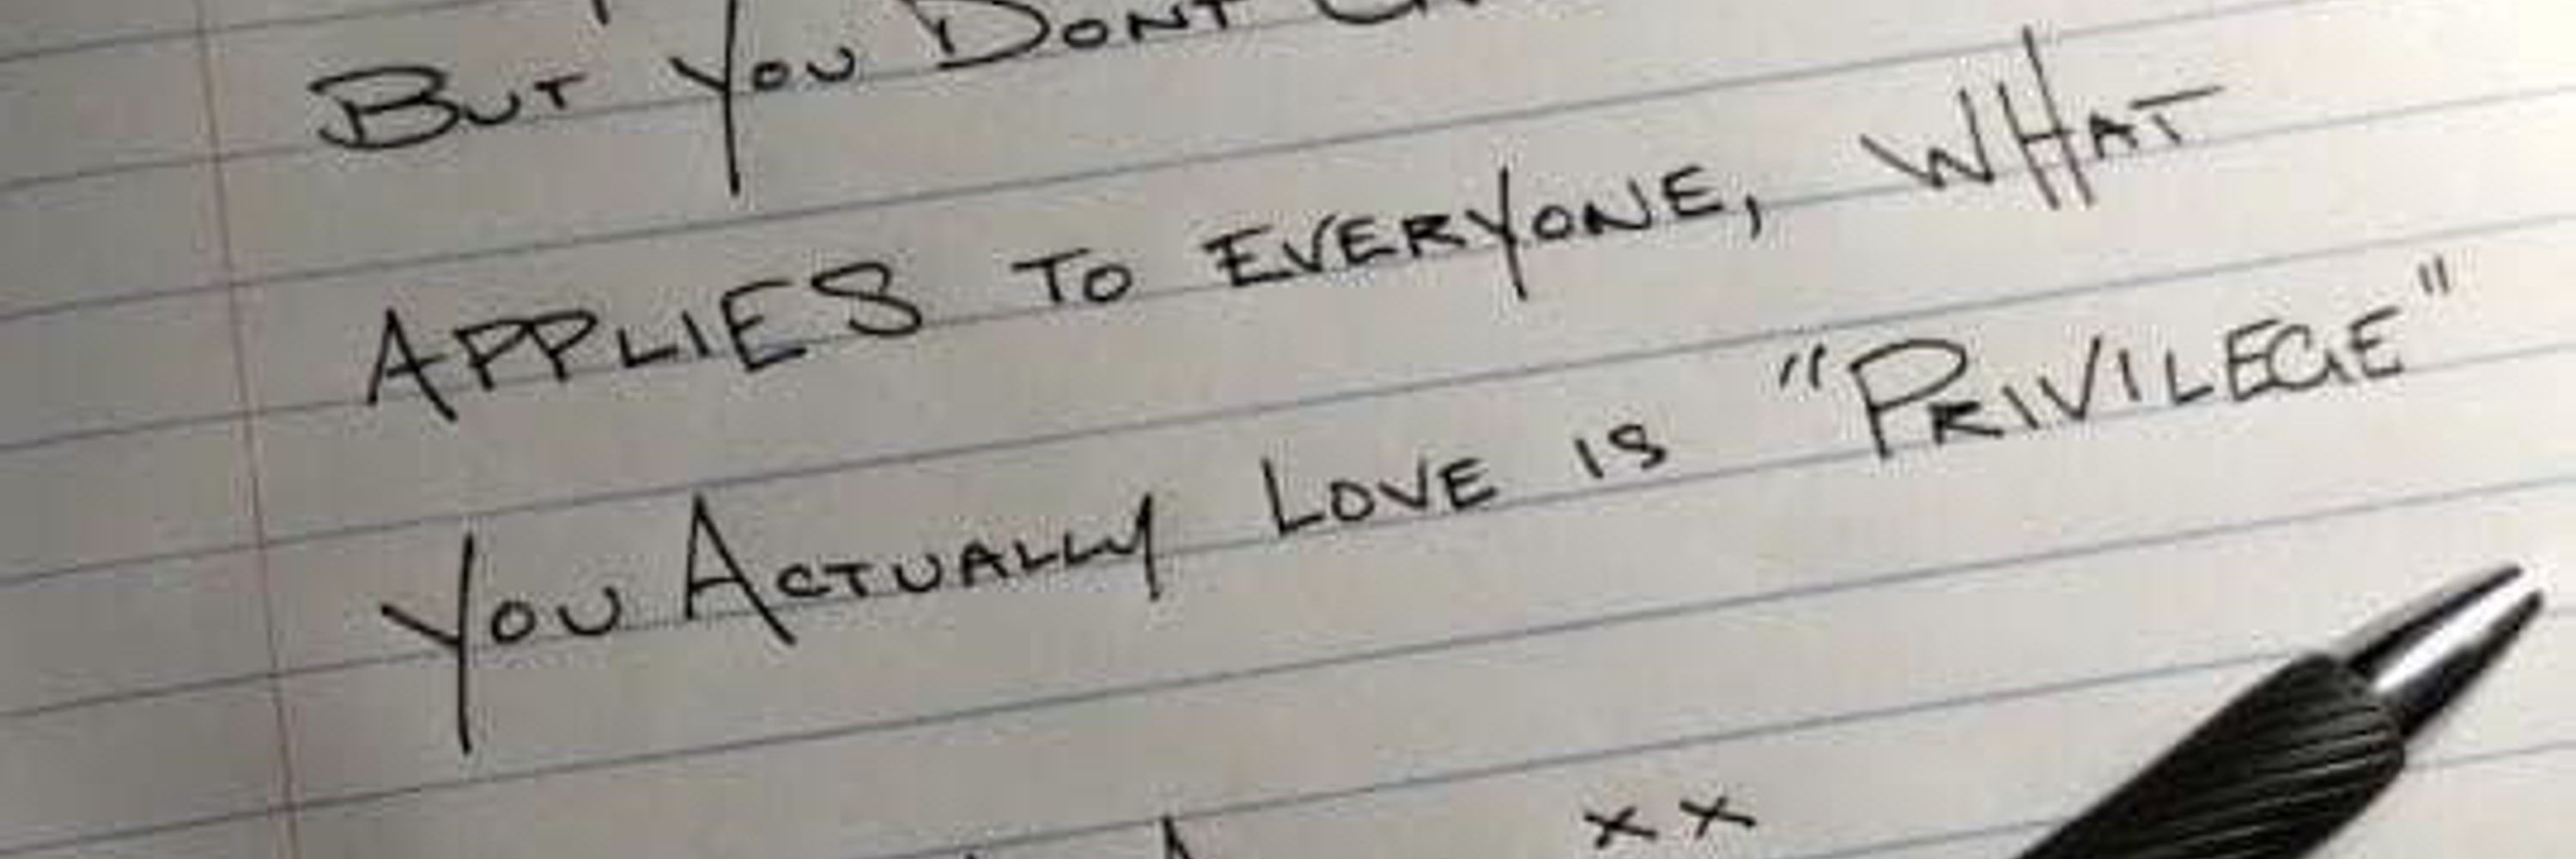 But You Dont
Applies to Everyone, What
You Actually Love is "Privilege"
xx